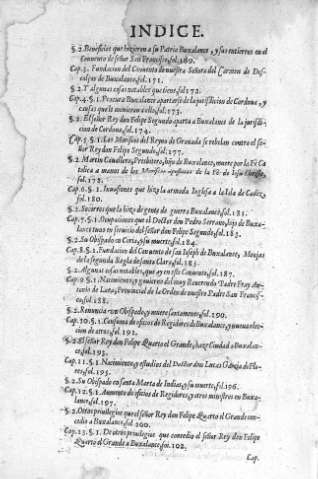 INDICE.
§.2. Beneficios que hizieron a su Patria Buxalance, y sus entierros en el
Convento de señor San Francisco, fol.169.
Cap.3. Fundacion del Convento de nuestra Señora del Carmen de Des-
calços de Buxalance, fol.171.
§.2. Y algunas cosas notables que tiene, fol.172.
Cap.4. §.1. Procura Buxalance apartarse de la jurisdicion de Cordoua, y
causas que le mouieron a ello, fol.173.
§.2. El señor Rey don Felipe Segundo aparta a Buxalance de la jurisdi-
cion de Cordoua, fol.174.
Cap.5. §.1. Los Moriscos del Reyno de Granada se rebelan contra el se-
ñor Rey don Felipe Segundo, fol.177.
§.2. Martin Cauallero, Presbitero, hijo de Buxalance, muere por la Fè Ca
tolica a manos de los Moriscos de la Fè de
fol.178.
Cap.6. §.1. Inuasiones que hizo la armada Inglesa a la Isla de Cadiz,
fol.180.
§.2. Socorros que la hizo de gente de guerra Buxalance, fol.181.
Cap.7. §.1. Ocupaciones que el Doctor don Pedro Serrano, hijo de Buxa-
lance tuuo en seruicio del señor don Felipe Segundo, fol.183.
§.2. Su Obispado en Coria, y su muerte, fol.184.
Cap.8. §.1. Fundacion del Conuento de san Joseph de Buxalance, Monjas
de la segunda Regla de santa Clara, fol.185.
§.2. Algunas cosas notables, que ay en este Conuento, fol.187.
Cap.9. §.1. Nacimiento, y gouierno del muy Reuerendo Padre Fray An-
tonio de Prouincial de la Orden de nuestro Padre San Francis-
co, fol.188.
§.2. Renuncia vn Obispado, y muere santamente, fol.190.
Cap.10. §.1. Consumo de oficios de Regidores de Buxalance, y nueua elec-
cion de otros, fol.192.
§.2. El señor Rey don Felipe Quarto el Grande, haze Ciudad a Buxalan-
ce, fol.193.
Cap.11. §.1. Nacimiento, y estudios del Doctor don Lucas de Flo-
res, fol.195.
§.2. Su Obispado en santa Marta de Indias, y su muerte, fol.196.
Cap.12. §.1. Aumento de oficios de Regidores, y otros ministros en Buxa-
lance, fol.197.
§.2. Otros priuilegios que el señor Rey don Felipe Quarto el Grande con-
cedio a Buxalance, fol.200.
Cap.13. §.1. De otros priuilegios que concedio el señor Rey don Felipe
Quarto el Grande a Buxalance, fol.202.
Cap.